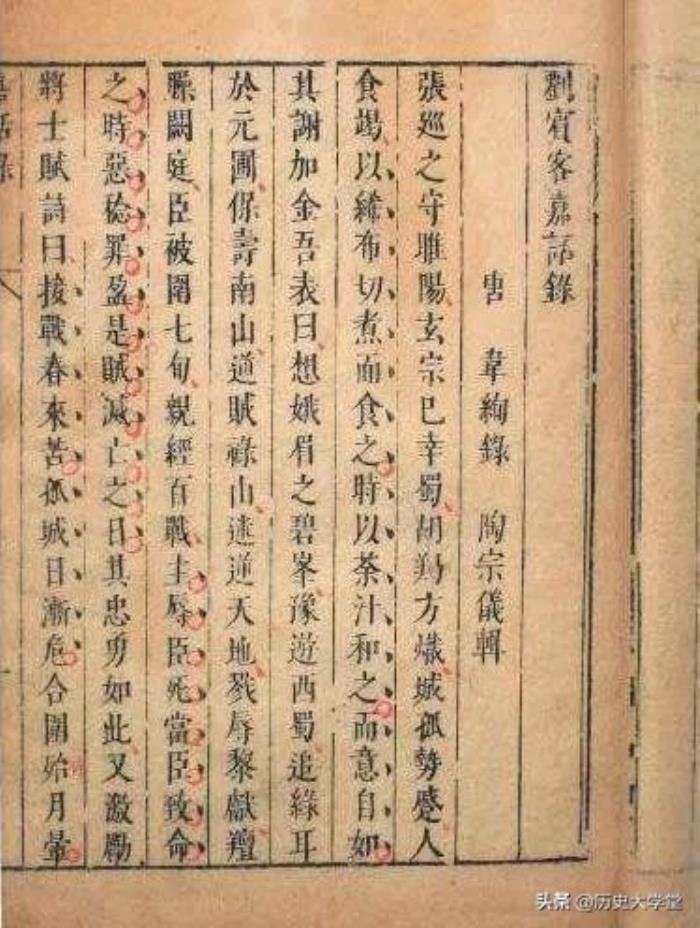 劉賓客嘉話錄
唐 韋絢錄 陶宗儀輯
張巡之守睢陽玄宗已幸蜀胡羯方熾城孤勢蹙人
食竭以紙布切煮而食之時以茶汁和之而意自如
其謝加金吾表曰想娥眉之碧峯豫遊西蜀追綠耳
於元圃保壽南山逆賊祿山迷逆天地戮辱黎獻羶
臊闕庭臣被圍七旬親經百戰主辱臣死當臣致命
之時惡稔罪盈是賊滅亡之日其忠勇如此又激勵
將士賦詩曰接戰春來苦孤城日漸危合圍殆月暈
嘉話錄
头条 @历史大学堂